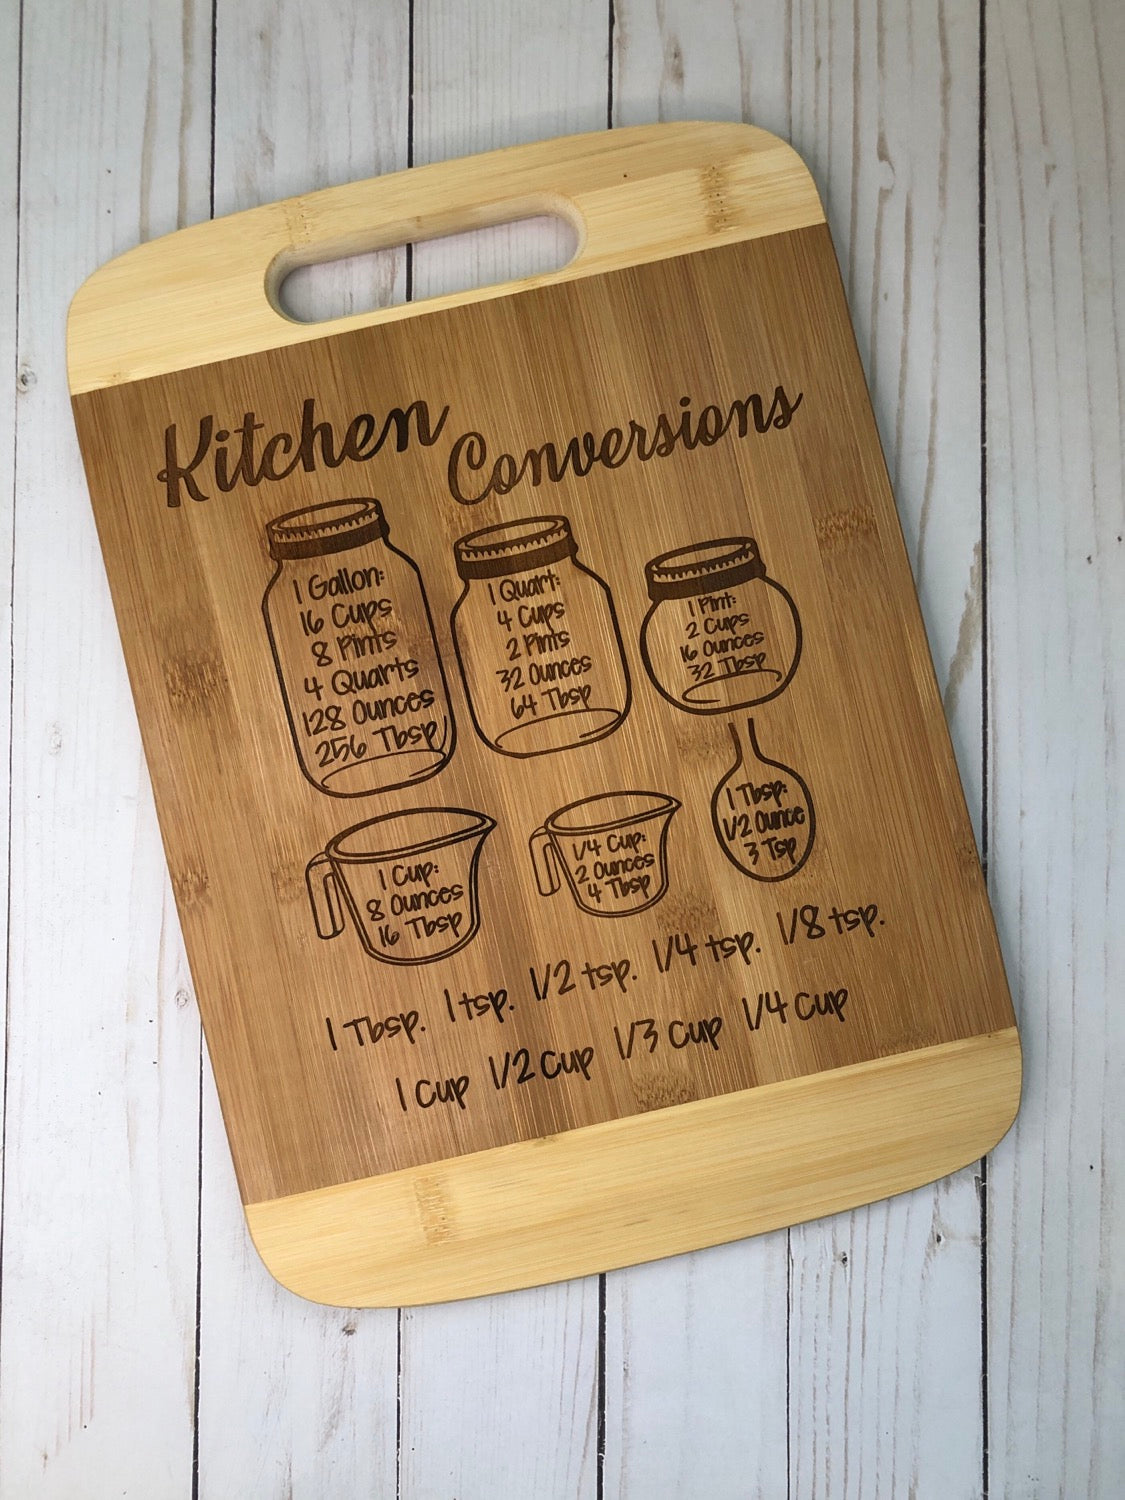 Kitchen Conversions
1 Gallon:
16 Cups
8 Pints
4 Quarts
128 Ounces
256 Tbsp
1 Quart:
4 Cups
2 Pints
32 Ounces
64 Tbsp
1 Pint:
2 Cups
16 Ounces
32 Tbsp
1 Cup:
8 Ounces
16 Tbsp
1/4 Cup:
2 Ounces
4 Tbsp
1 Tbsp:
1/2 Ounce
3 Tsp
1 Tbsp. 1 tsp. 1/2 tsp. 1/4 tsp. 1/8 tsp.
1 Cup 1/2 Cup 1/3 Cup 1/4 Cup